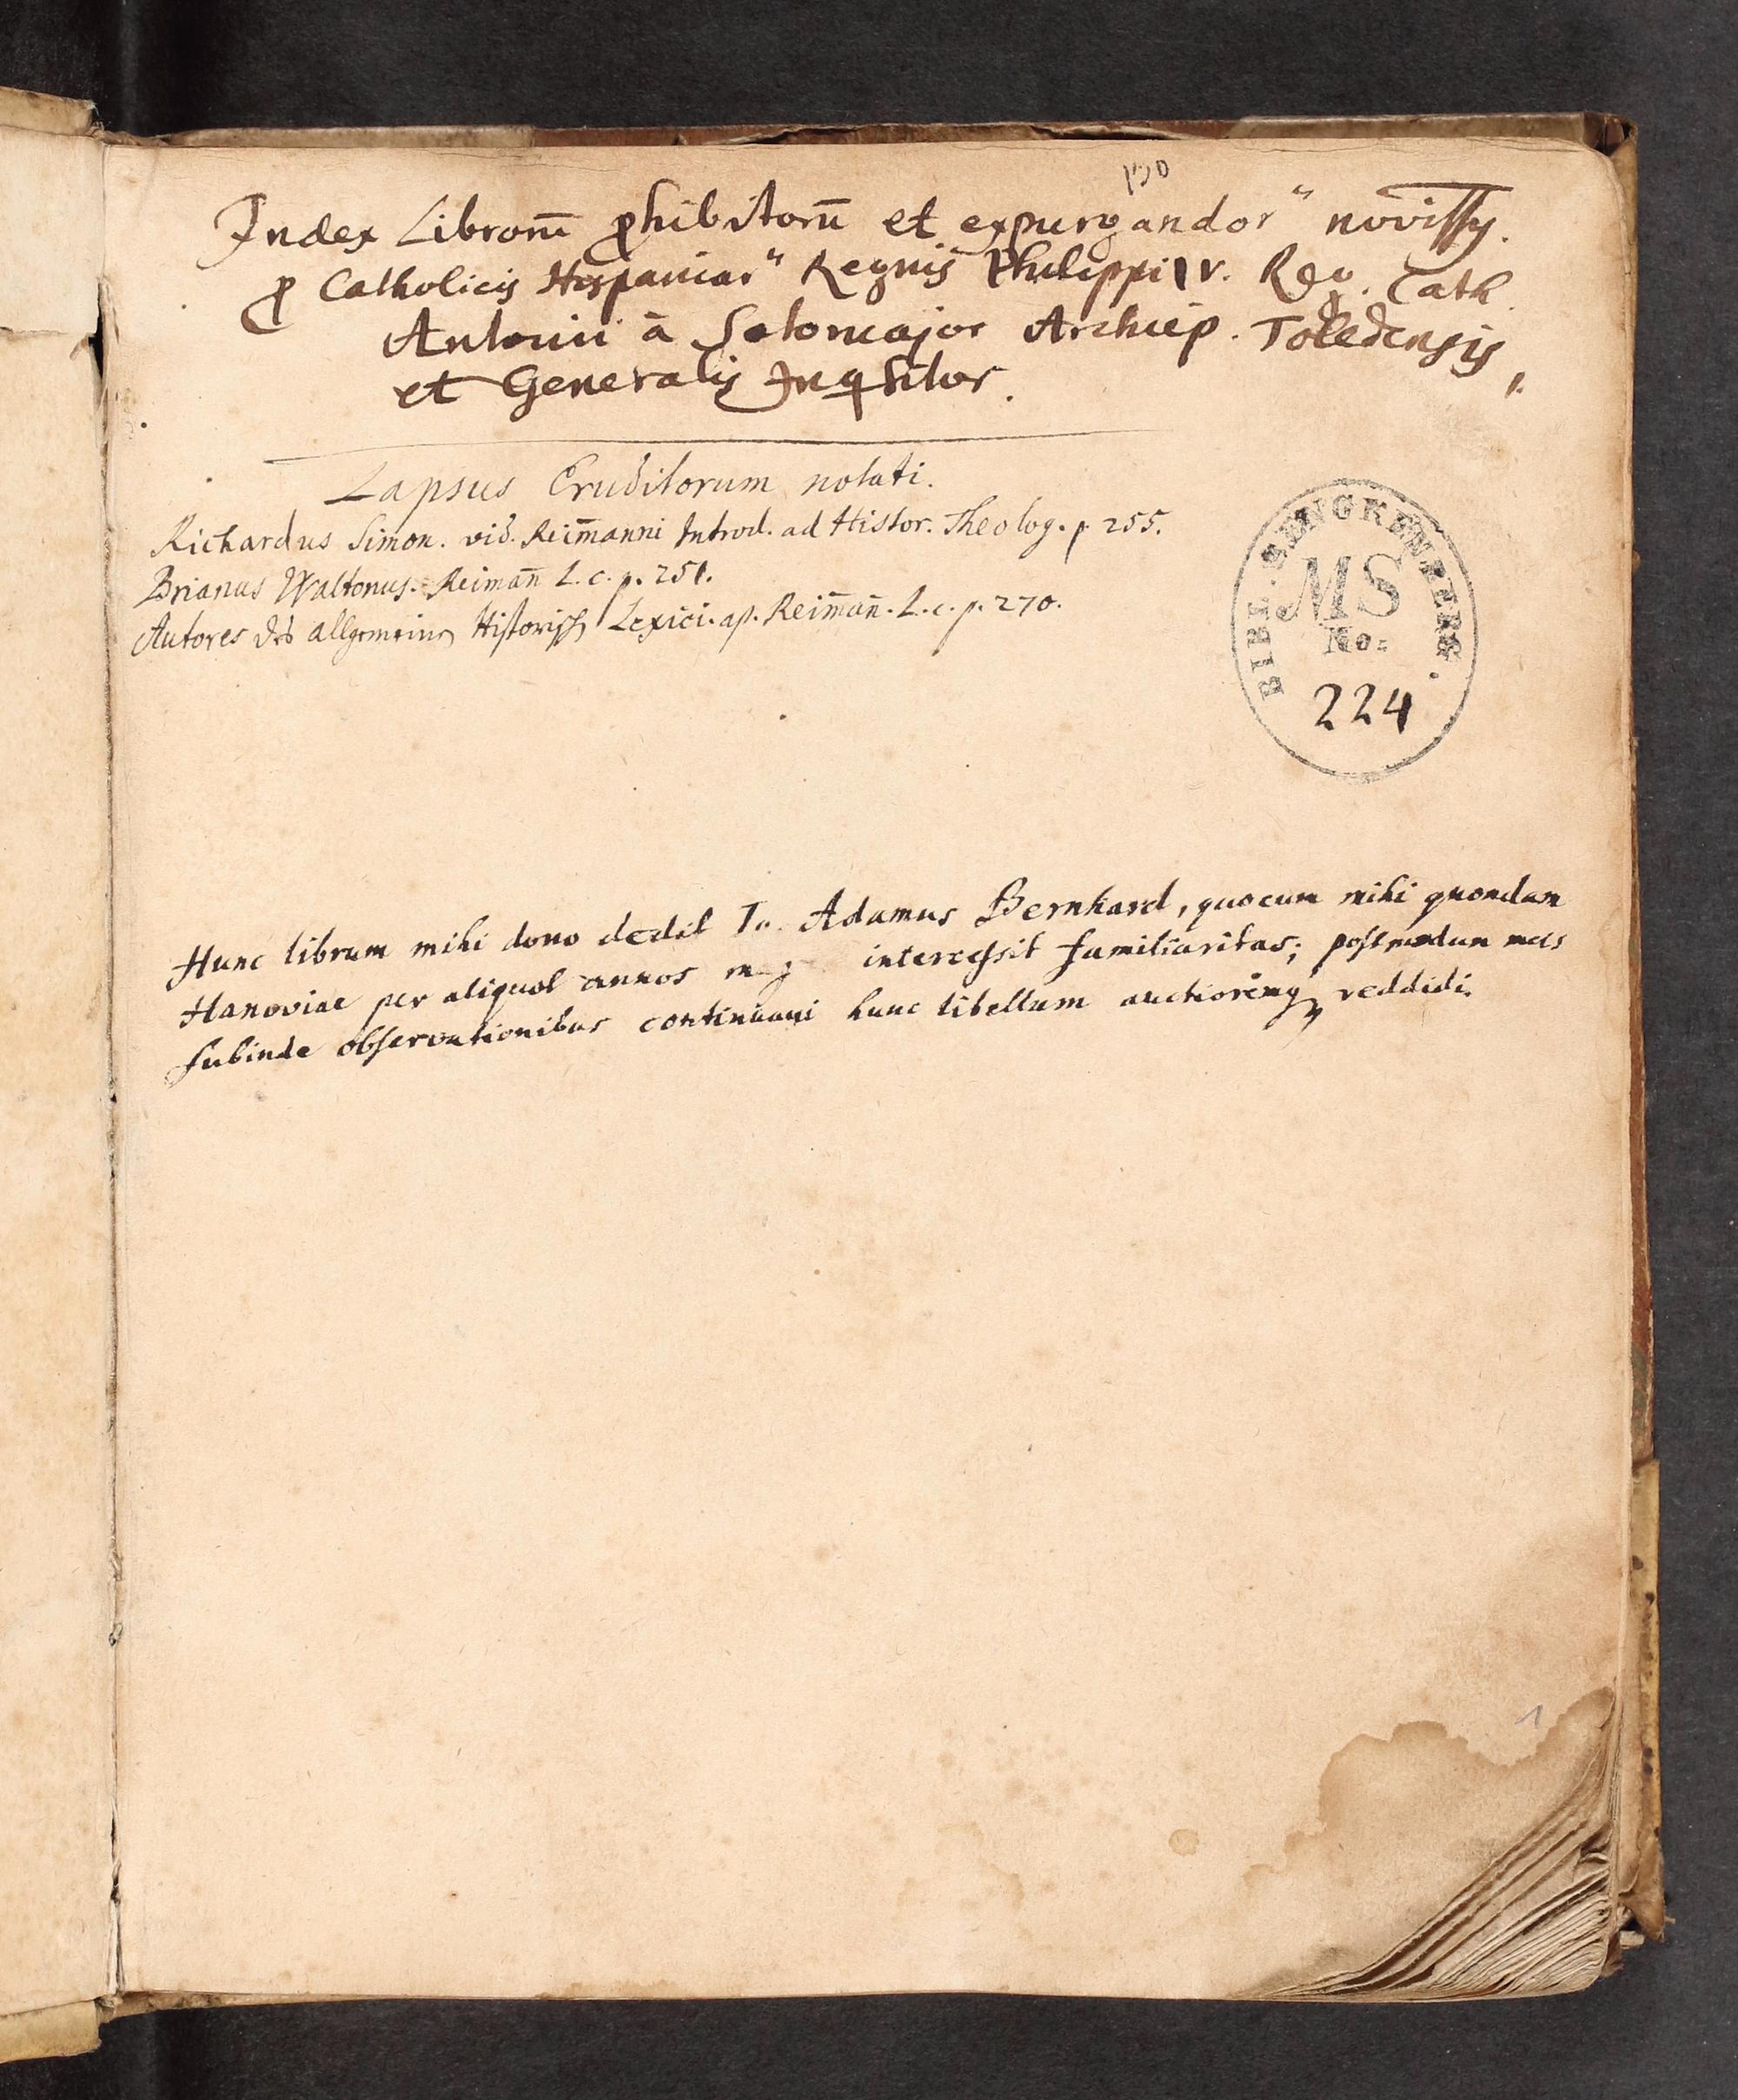 Index Librorū ꝓhibitorū et expurgandor" noviss9.
ꝓ Catholicis Hispaniar" Regnis Philippi IV. Reg. Cath.
Antonii à Sotomajor Archiep. Toledensis
et Generalis Inqsitor.
Lapsus Eruditorum notati.
Richardus Simon. vid. Reim̄anni Introd. ad Histor. Theolog. p. 255.
Brianus Waltonus. Reiman̄ l. c. p. 251.
Autores des allgemeinen Historisch Lexici. ap. Reim̄an̄. l. c. p. 270.
BIBL. SENCKENBERG.
MS
No:
224
Hunc librum mihi dono dedit Jo. Adamus Bernhard, quocum mihi quondam
Hanoviae per aliquot annos intercessit familiaritas; postmodum meis
subinde observationibus continuavi hunc libellum auctioremq3 reddidi.
1